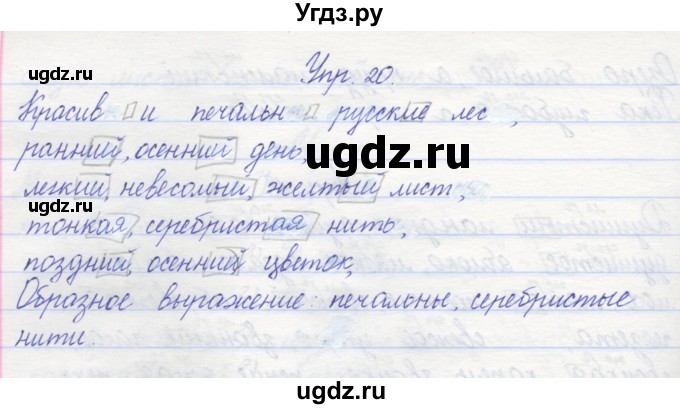 Угдз.ру
Упр. 20.
Красив и печальн русский лес,
ранний, осенний день,
легкий, невесомый, желтый лист,
тонкая, серебристая нить,
поздний, осенний цветок,
Образное выражение: печальны, серебристые
нити.
ugdz.ru
ugdz.ru
ugdz.ru
ugdz.ru
ugdz.ru
ugdz.ru
ugdz.ru